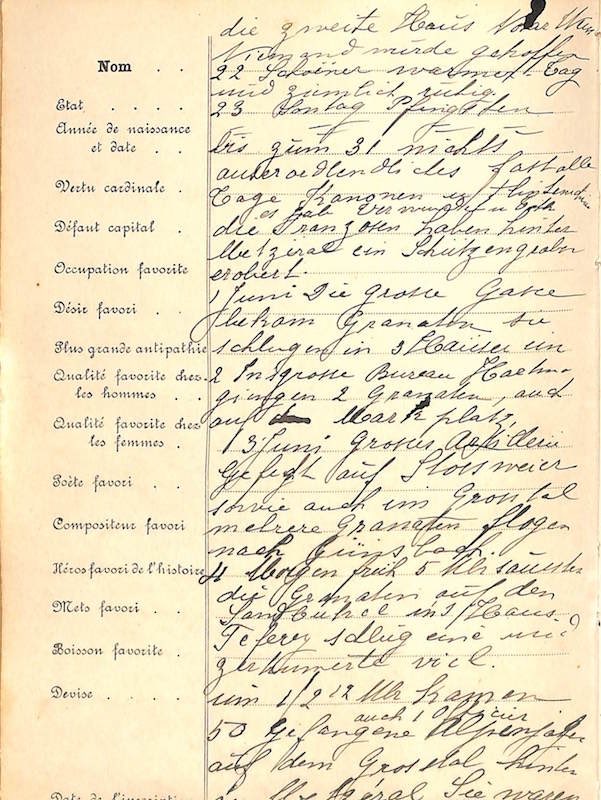 die zweite Haus
Niemand wurde getroffen
22 Schöner warmer Tag
und zimlich ruhig.
23 Sontag Pfingsten
Nom . .
Etat . . . .
Année de naissance
et date . .
Vertu cardinale .
Défaut capital .
Occupation favorite
Désir favori . .
Plus grande antipathie
Qualité favorite chez
les hommes . .
Qualité favorite chez
les femmes .
Poète favori . .
Compositeur favori
Héros favori de l'histoire
Mets favori . .
Boisson favorite .
Devise . . . .
Date de l'inscripti
bis zum 31 nichts
auseroedlendliches fast alle
Tage Kanonen u
es gab Verwundte u
die Franzosen haben hinter
Metzeral ein Schützengrabn
erobert.
1 Juni Die grosse Gasse
bekam Granaten sie
schlugen in 3 Häuser ein
2 Ins grosse Bureau Hartma
gingen 2 Granaten, auch
auf Markplatz,
3 Juni Groses Artillerie
Gefegt auf Stossweier
sowie auch im Grosstal
mehrere Granaten flogen
nach Günsbach.
4 Morgen früh 5 Uhr sausten
die Granaten auf den
Sandbukel ins Haus
Teferey schlug eine und
zertrumerte viel.
um 1/2 12 Uhr kamen
auch 1 Oficier
50 Gefangene Alpenjäger
auf dem Grosstal hinter
Metzeral Sie waren